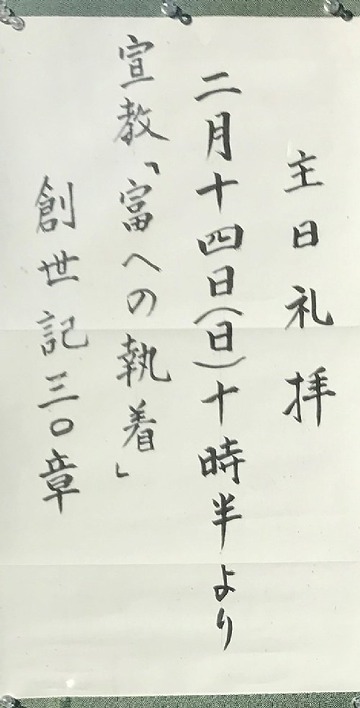 主日礼拝
二月十四日(日)十時半より
宣教「富への執着」
創世記三〇章